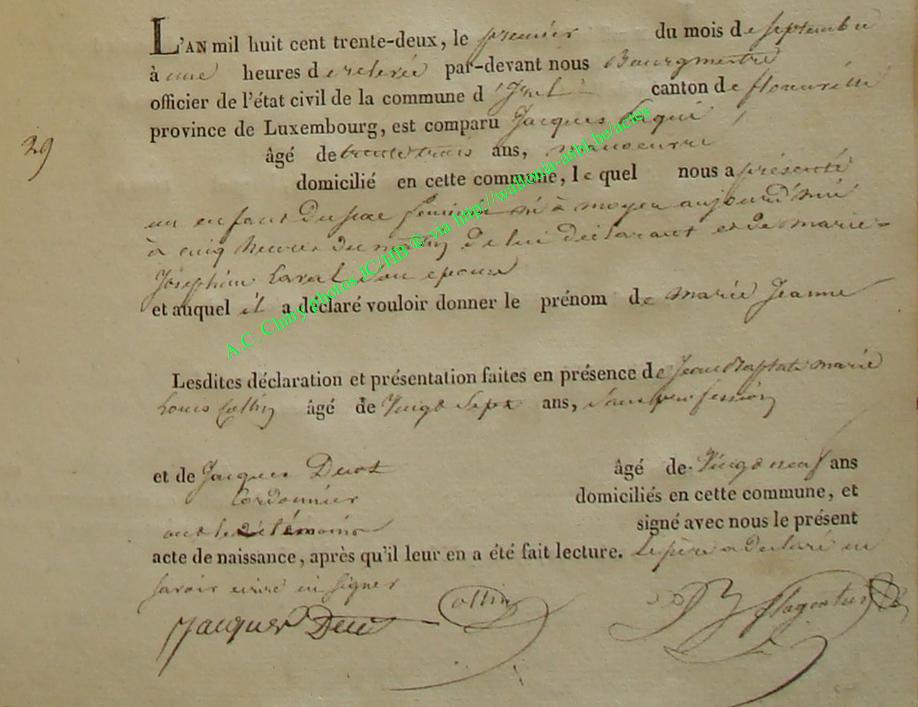 L'AN mil huit cent trente-deux, le premier du mois de septembre
à une heures de relevée par-devant nous Bourgmestre
officier de l'état civil de la commune d' canton de florenville
province de Luxembourg, est comparu Jacques
29
âgé de trente trois ans, manoeuvre
domicilié en cette commune, le quel nous a présenté
un enfant du sexe féminin né à moyen aujourd'hui
à cinq heures du matin de lui déclarant et de marie-
Joséphine Laval son épouse
et auquel il a déclaré vouloir donner le prénom de marie Jeanne
A.C. Chiny photos JC-HB @ via http://wallonia-asbl.be/actes
Lesdites déclaration et présentation faites en présence de Jean Baptiste marie
Louis Collin âgé de vingt sept ans, sans profession
et de Jacques âgé de vingt neuf ans
Cordonnier domiciliés en cette commune, et
témoins signé avec nous le présent
acte de naissance, après qu'il leur en a été fait lecture. Le père a declaré ne
savoir écrire ni signer
Jacques Collin